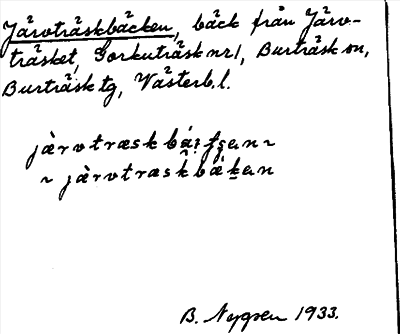 Järvträskbäcken, bäck från Järv-
träsket, Gorkuträsk nr 1, Burträsk sn,
Burträsk tg, Västerb. l.
järvtræsk
~ järvtræsk
B. Nygren 1933.